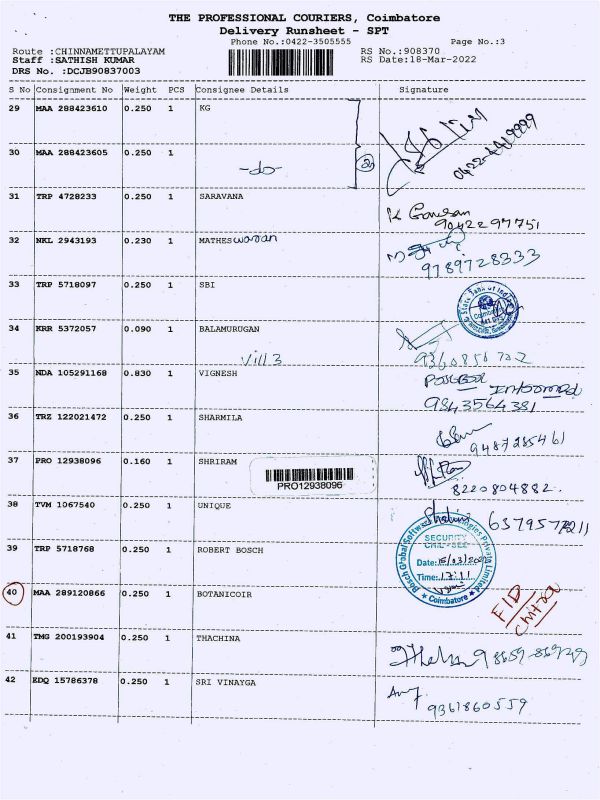 THE PROFESSIONAL COURIERS, Coimbatore
Delivery Runsheet - SPT
Phone No.:0422-3505555 Page No.:3
Route :CHINNAMETTUPALAYAM RS No.:908370
Staff :SATHISH KUMAR RS Date:18-Mar-2022
DRS No. :DCJB90837003
S No Consignment No Weight PCS Consignee Details Signature
29 MAA 288423610 0.250 1 KG
30 MAA 288423605 0.250 1
-do-
31 TRP 4728233 0.250 1 SARAVANA
9042297751
32 NKL 2943193 0.230 1 MATHESwaran
9789728333
33 TRP 5718097 0.250 1 SBI
State Bank of India
34 KRR 5372057 0.090 1 BALAMURUGAN
9360856702
35 NDA 105291168 0.830 1 VIGNESH
9843564381
36 TRZ 122021472 0.250 1 SHARMILA
9487285461
37 PRO 12938096 0.160 1 SHRIRAM
PRO12938096
8220804882
38 TVM 1067540 0.250 1 UNIQUE
39 TRP 5718768 0.250 1 ROBERT BOSCH
Bosch Global Software Technologies Private Limited
SECURITY
Date:
Time: 17:11
Coimbatore
40 MAA 289120866 0.250 1 BOTANICOIR
41 TMG 200193904 0.250 1 THACHINA
42 EDQ 15786378 0.250 1 SRI VINAYGA
9361860559